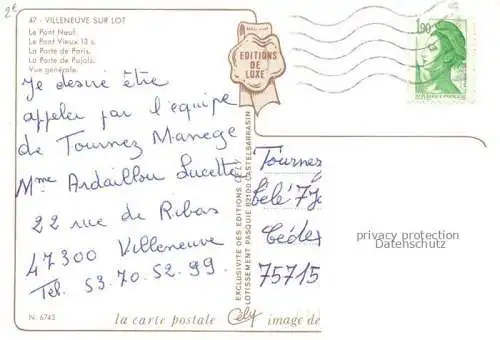 2€
47 - VILLENEUVE SUR LOT
Le Pont Neuf.
Le Pont Vieux 13 s.
La Porte de Paris.
La Porte de Pujols.
Vue générale.
EDITIONS
DE
LUXE
1,90
Je desire être
appeler par l'equipe
de Tournez Manege
Mme Ardaillou Lucette
22 rue de Ribas
47300 Villeneuve
Tel. 53.70.52.99
EXCLUSIVITE DES EDITIONS CELY
LOTISSEMENT PASQUIE 82100 CASTELSARRASIN
Tournez
Télé 7 J
Cédex
75715
privacy protection
Datenschutz
N. 6743
la carte postale Cely image de